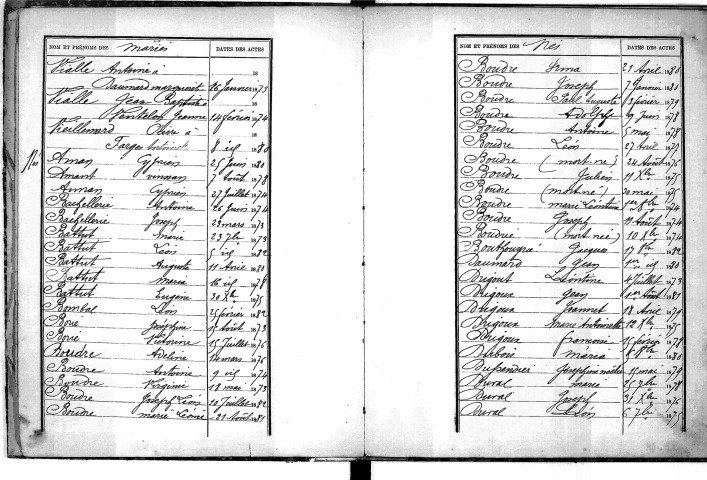 NOM ET PRÉNOMS DES Mariés DATES DES ACTES
Vialle Antoine à 18
Daumard marguerite 26 Janvier 1873
Vialle Jean Baptiste à 18
Jeanne 14 février 1874
Vieillemard à 18
Farges Antoinette 8 id 1880
Nés
Aman Cyprien 25 Juin 1880
Amant 7 Août 1878
Amman Cyprien 27 Juillet 1874
Bachellerie Antoine 26 Juin 1874
Bachellerie Joseph 23 mars 1873
Battut Marie 23 7bre 1873
Battut Léon 5 id 1882
Battut Auguste 11 Avril 1880
Battut Maria 16 id 1878
Battut Eugène 30 Xbre 1875
Bombal Léon 25 février 1882
Borie Joséphine 15 Août 1873
Borie Victorine 15 Juillet 1876
Boudre Adeline 12 mars 1876
Boudre Antoine 9 id 1874
Boudre Virginie 18 mai 1873
Boudre Joseph Léon 10 Juillet 1882
Boudre marie Léonie 21 Août 1881
NOM ET PRÉNOMS DES Nés DATES DES ACTES
Boudre Irma 21 Avril 1880
Boudre Joseph 7 Janvier 1880
Boudre Paul Auguste 13 février 1879
Boudre Adolphe 9 Juin 1878
Boudre Antoine 5 mai 1878
Boudre Léon 27 Avril 1877
Boudre (mort né) 24 Août 1876
Boudre Julien 11 Xbre 1875
Boudre (mort né) 20 mai 1875
Boudre marie Léontine 1er 8bre 1874
Boudre Joseph 11 Août 1874
Boudrie (mort né) 10 Xbre 1874
Jacques 1882
Daumard Jean 1er id 1880
Drigout Léontine 4 Juillet 1873
Drigoux Jean 1er Août 1881
Drigoux Jeannet 18 Avril 1879
Drigoux Marie Antoinette 12 Xbre 1875
Drigoux francois 15 février 1878
Maria 8 8bre 1880
15 mai 1879
Duval marie 25 7bre 1878
Duval Joseph 31 Xbre 1876
Duval Léon 6 7bre 1875